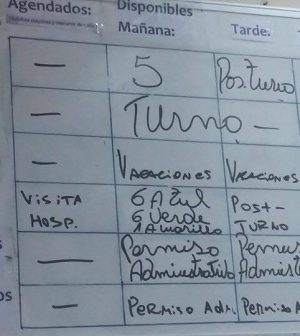 Agendados: Disponibles
Mañana: Tarde:
— 5 Pos.turno
— TURNO —
— VACACIONES VACACIONES
VISITA HOSP. 6 AZUL POST-TURNO
6 Verde
1 Amarillo
— Permiso Administrativo
— PERMISO Adm. Permiso